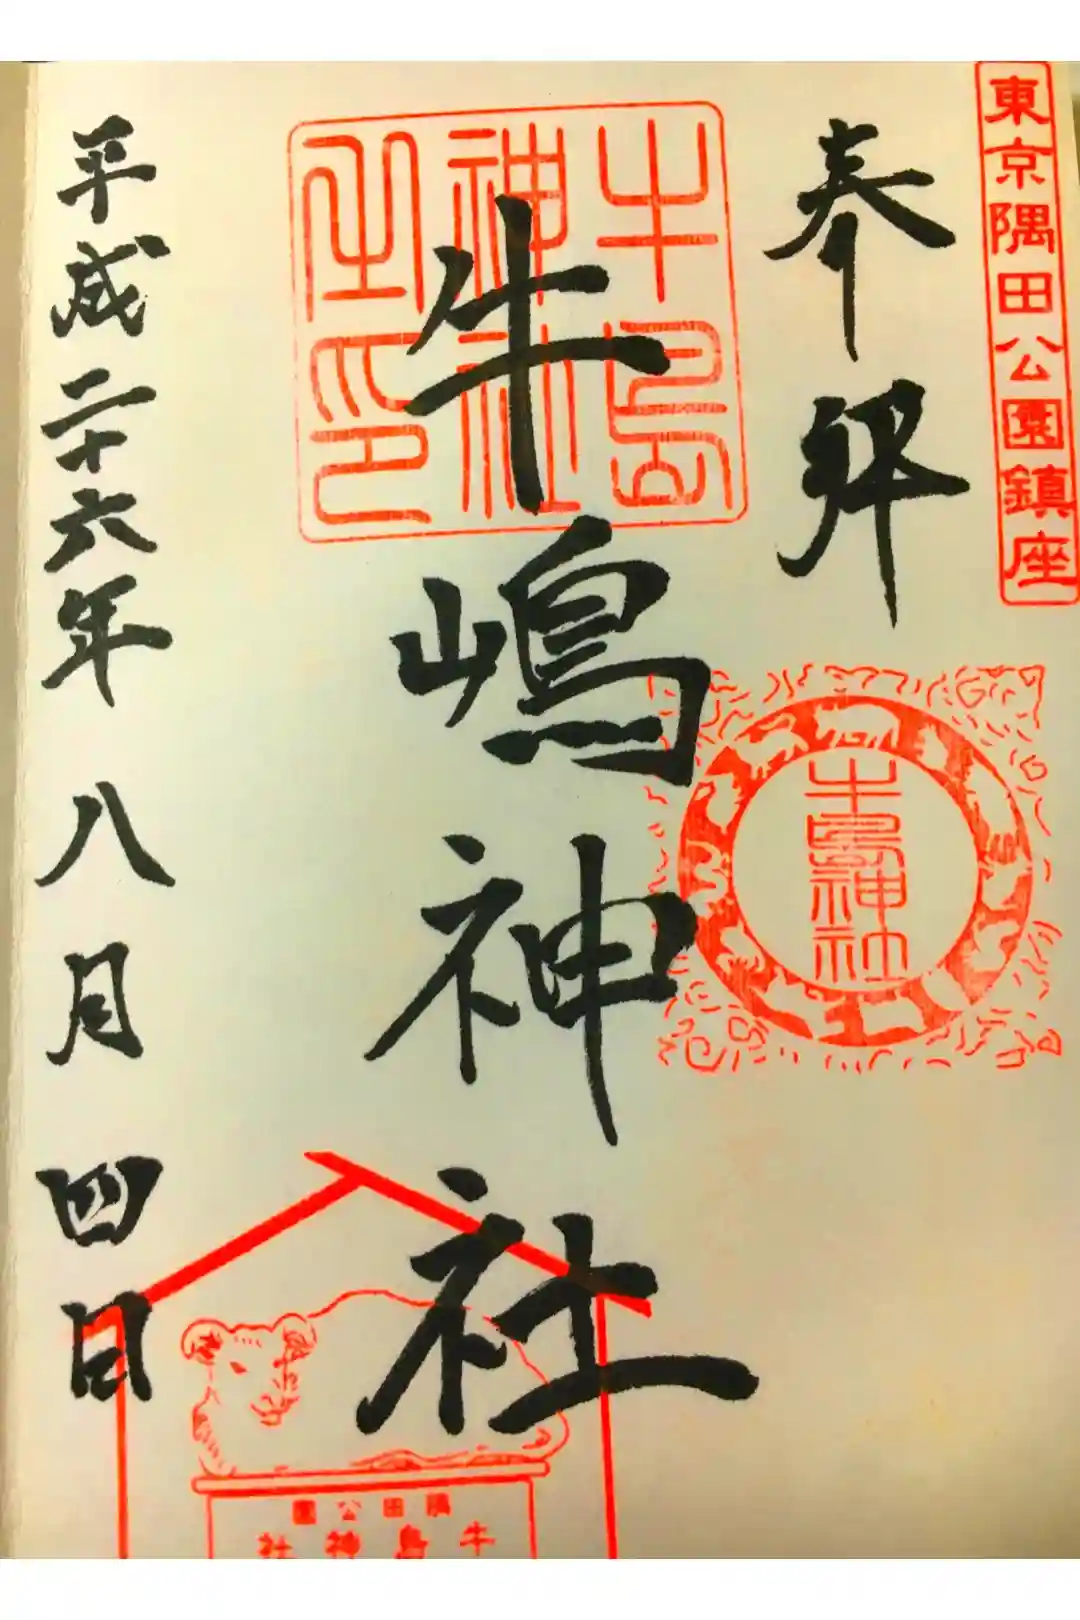 東京隅田公園鎮座
奉拝
牛嶋神社
牛島
神社
之印
牛島神社
平成二十六年八月四日
隅田公園
牛島神社